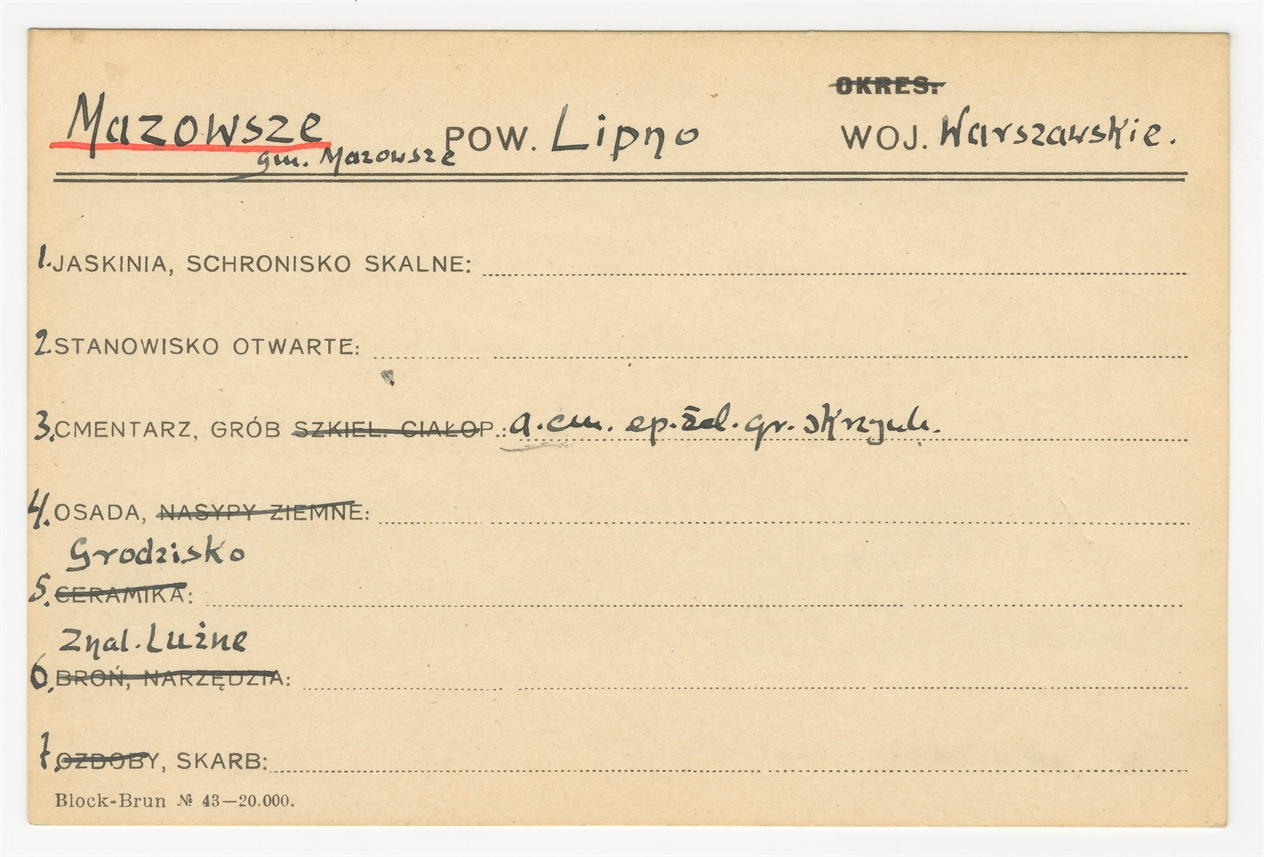 OKRES.
Mazowsze POW. Lipno WOJ. Warszawskie.
gm. Mazowsze
1. JASKINIA, SCHRONISKO SKALNE:
2. STANOWISKO OTWARTE:
3. CMENTARZ, GRÓB SZKIEL. CIAŁOP.: a. cm. ep. żel. gr. skrzynk.
4. OSADA, NASYPY ZIEMNE:
Grodzisko
5. CERAMIKA:
Znal. Luźne
6. BROŃ, NARZĘDZIA:
7. OZDOBY, SKARB:
Block-Brun № 43—20.000.